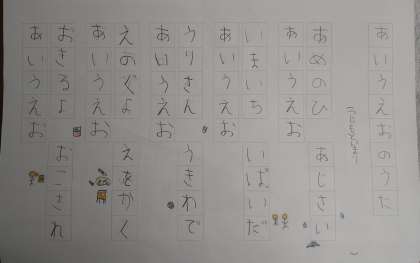 あいうえおのうた
あめのひ　あじさい
あいうえお
いまいち　いばいだ
あいうえお
うりさん　うきわで
あいうえお
えのぐよ　えをかく
あいうえお
おきるよ　おこされ
あいうえお